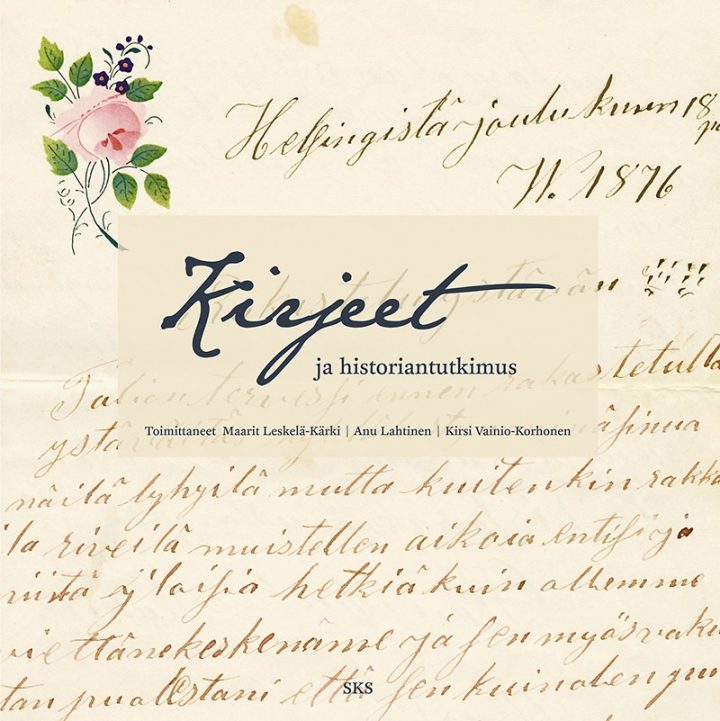 Helsingistä joulukuun 18
W. 1876
Kirjeet
ja historiantutkimus
Toimittaneet Maarit Leskelä-Kärki | Anu Lahtinen | Kirsi Vainio-Korhonen
ennen rakastetulta
näitä lyhyitä mutta kuitenkin rakka
riveilä muistellen aikoia entisiä ja
niitä iloisia hetkiä kuin ollemme
viettäne keskenäme ja sen myös vaku
tan puolestani että sen kuin olen
SKS